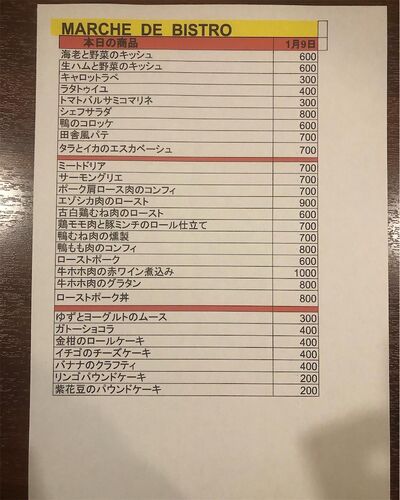 MARCHE DE BISTRO
本日の商品 1月9日
海老と野菜のキッシュ 600
生ハムと野菜のキッシュ 600
キャロットラペ 300
ラタトゥイユ 400
トマトバルサミコマリネ 300
シェフサラダ 800
鴨のコロッケ 600
田舎風パテ 700
タラとイカのエスカベーシュ 700
ミートドリア 700
サーモングリエ 700
ポーク肩ロース肉のコンフィ 700
エゾシカ肉のロースト 900
古白鶏むね肉のロースト 600
鶏モモ肉と豚ミンチのロール仕立て 700
鴨むね肉の燻製 700
鴨もも肉のコンフィ 800
ローストポーク 600
牛ホホ肉の赤ワイン煮込み 1000
牛ホホ肉のグラタン 800
ローストポーク丼 800
ゆずとヨーグルトのムース 300
ガトーショコラ 400
金柑のロールケーキ 400
イチゴのチーズケーキ 400
バナナのクラフティ 400
リンゴパウンドケーキ 200
紫花豆のパウンドケーキ 200